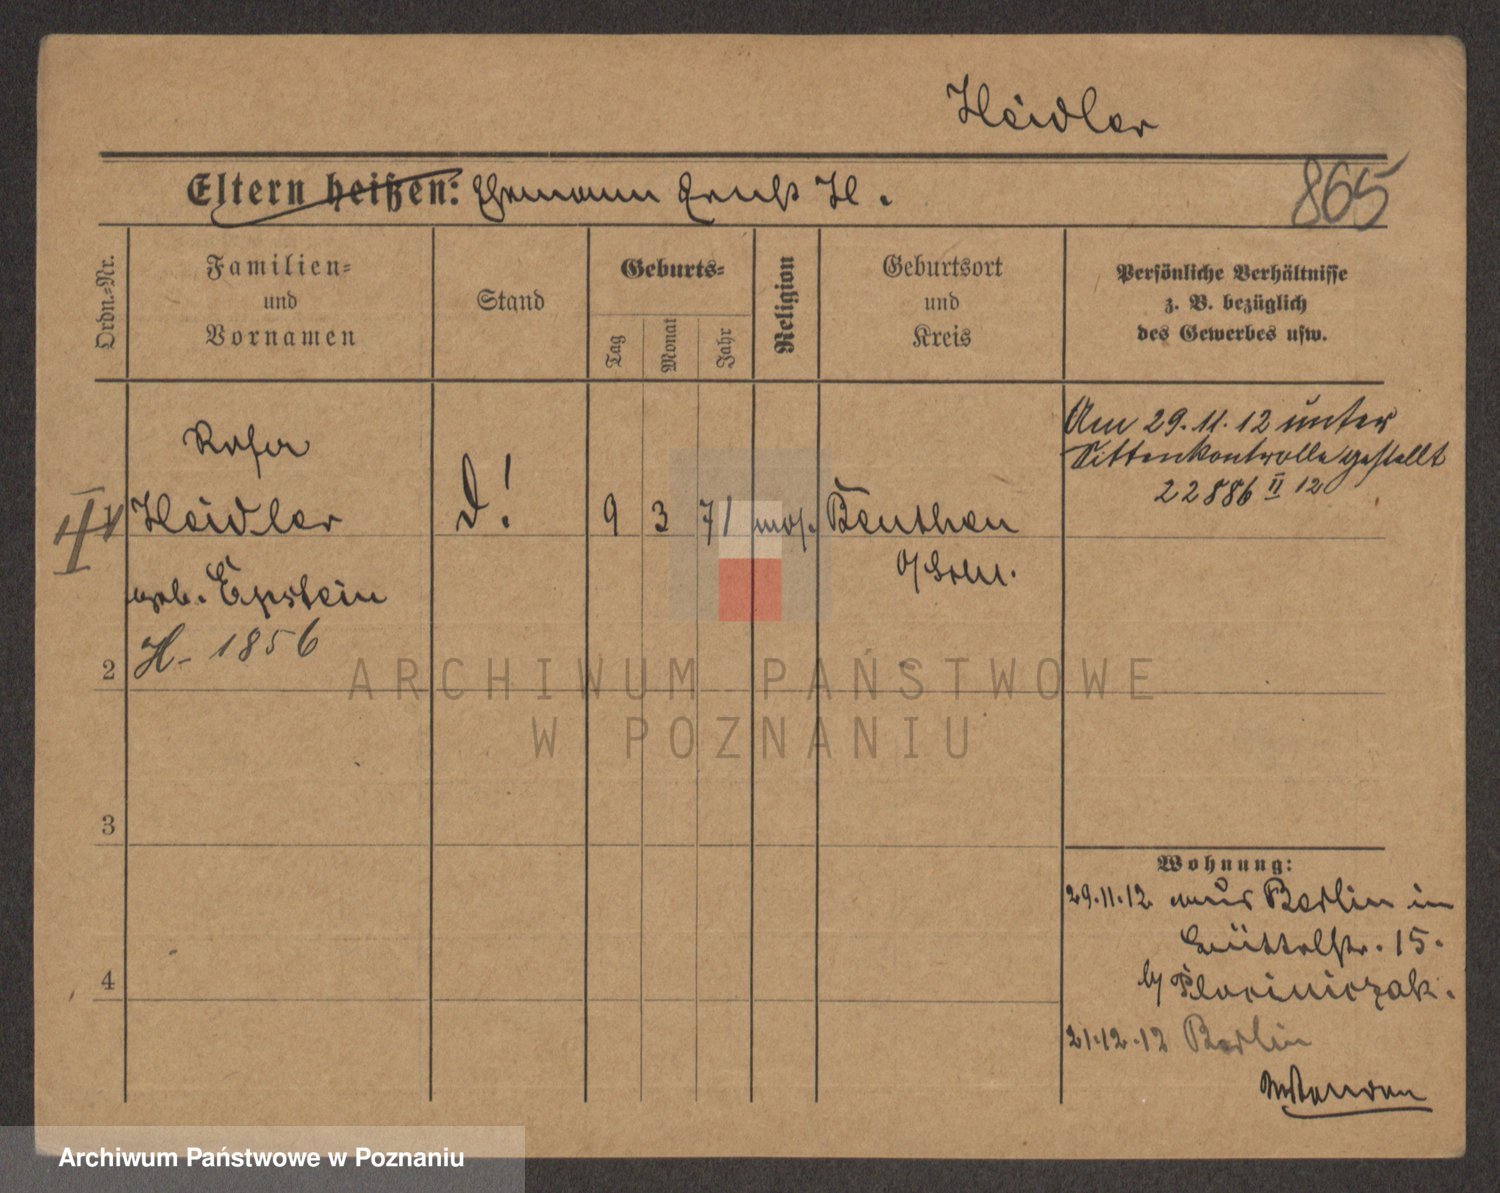 Heidler
Eltern heißen: Ehemann Ernst H.
865
Ordn.-Nr.
Familien-
und
Vornamen
Stand
Geburts-
Tag
Monat
Jahr
Religion
Geburtsort
und
Kreis
Persönliche Verhältnisse
z. B. bezüglich
des Gewerbes usw.
Rosa
Heidler
geb. Epstein
H- 1856
D!
9 3 71 mos. Beuthen
O/Schl.
Am 29.11.12 unter
Sittenkontrolle gestellt
22886 II 12
2
3
4
Wohnung:
29.11.12 aus Berlin in
Büttelstr. 15.
b/ Plociniczak.
21.12.12 Berlin
ARCHIWUM PAŃSTWOWE
W POZNANIU
Archiwum Państwowe w Poznaniu